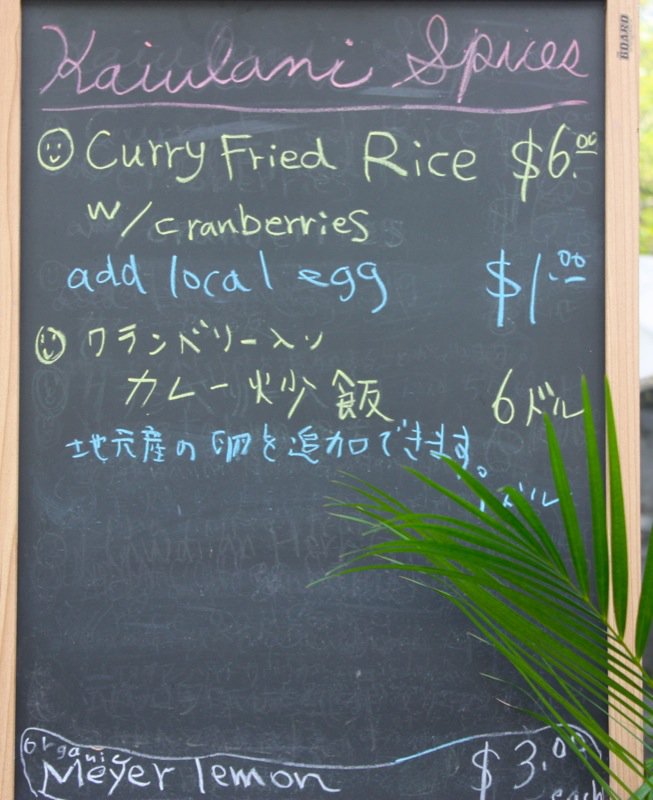 BOARD
Kaiulani Spices
Curry Fried Rice $6.00
w/cranberries
add local egg $1.00
クランベリー入り
カレー炒飯 6ドル
地元産の卵を追加できます。
1ドル
organic
Meyer lemon $3.00
each